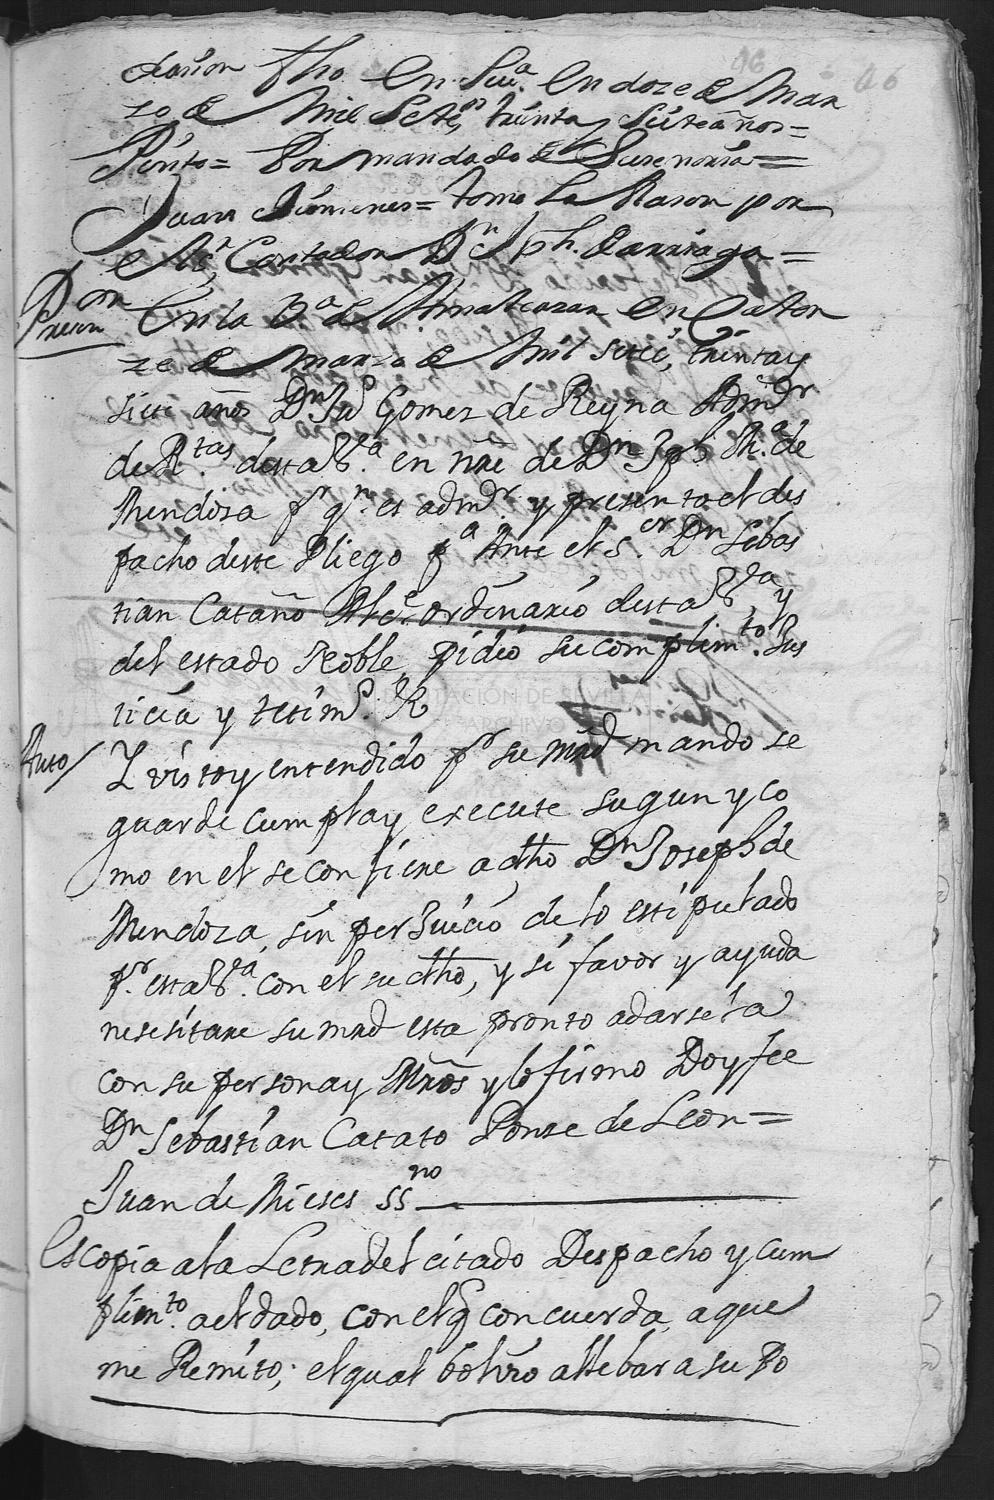 46 46
chañon fho en Seva. en doze de Mar
zo de Mil Setetos. treinta y siete años=
Pinto= Por mandado de Su senoria=
Juan Ximenes= tomo la Rason por
el Sr. Contador Dn. Jph. de Arriaga=
Presn. En la Va. de Almalcazar en Cator
ze de Marzo de Mil setects. treinta y
siete años Dn. Juo. Gomez de Reyna Admdr
de Rtas. desta Va. en nre de Dn Jph Ma. de
Mendoza pr qn. es admdr. y presento el des
pacho deste Pliego pa. Ante el Sor. Dn Sebas
tian Cataño Alce. ordinario desta Va. y
del estado Noble, pidio su complimto. Jus
ticia y testimo.
DIPUTACIÓN DE SEVILLA
ARCHIVO
Auto/ Y visto y entendido pr su mrd mando se
guarde cumpla y execute sugun y co
mo en el se confiere a dho Dn Joseph de
Mendoza, sin perJuicio de lo estipulado
pr. esta Va. con el su dho, y si favor y ayuda
nesesitare su mrd esta pronto a darsela
con su persona y Mros y lo firmo Doy fee
Dn Sebastian Catato Ponze de Leon=
Juan de Mieses ssno
Es copia a la Letra del citado Despacho y cum
plimto. a el dado, con el q concuerda, a que
me Remito; el qual bolvio a llebar a su Po